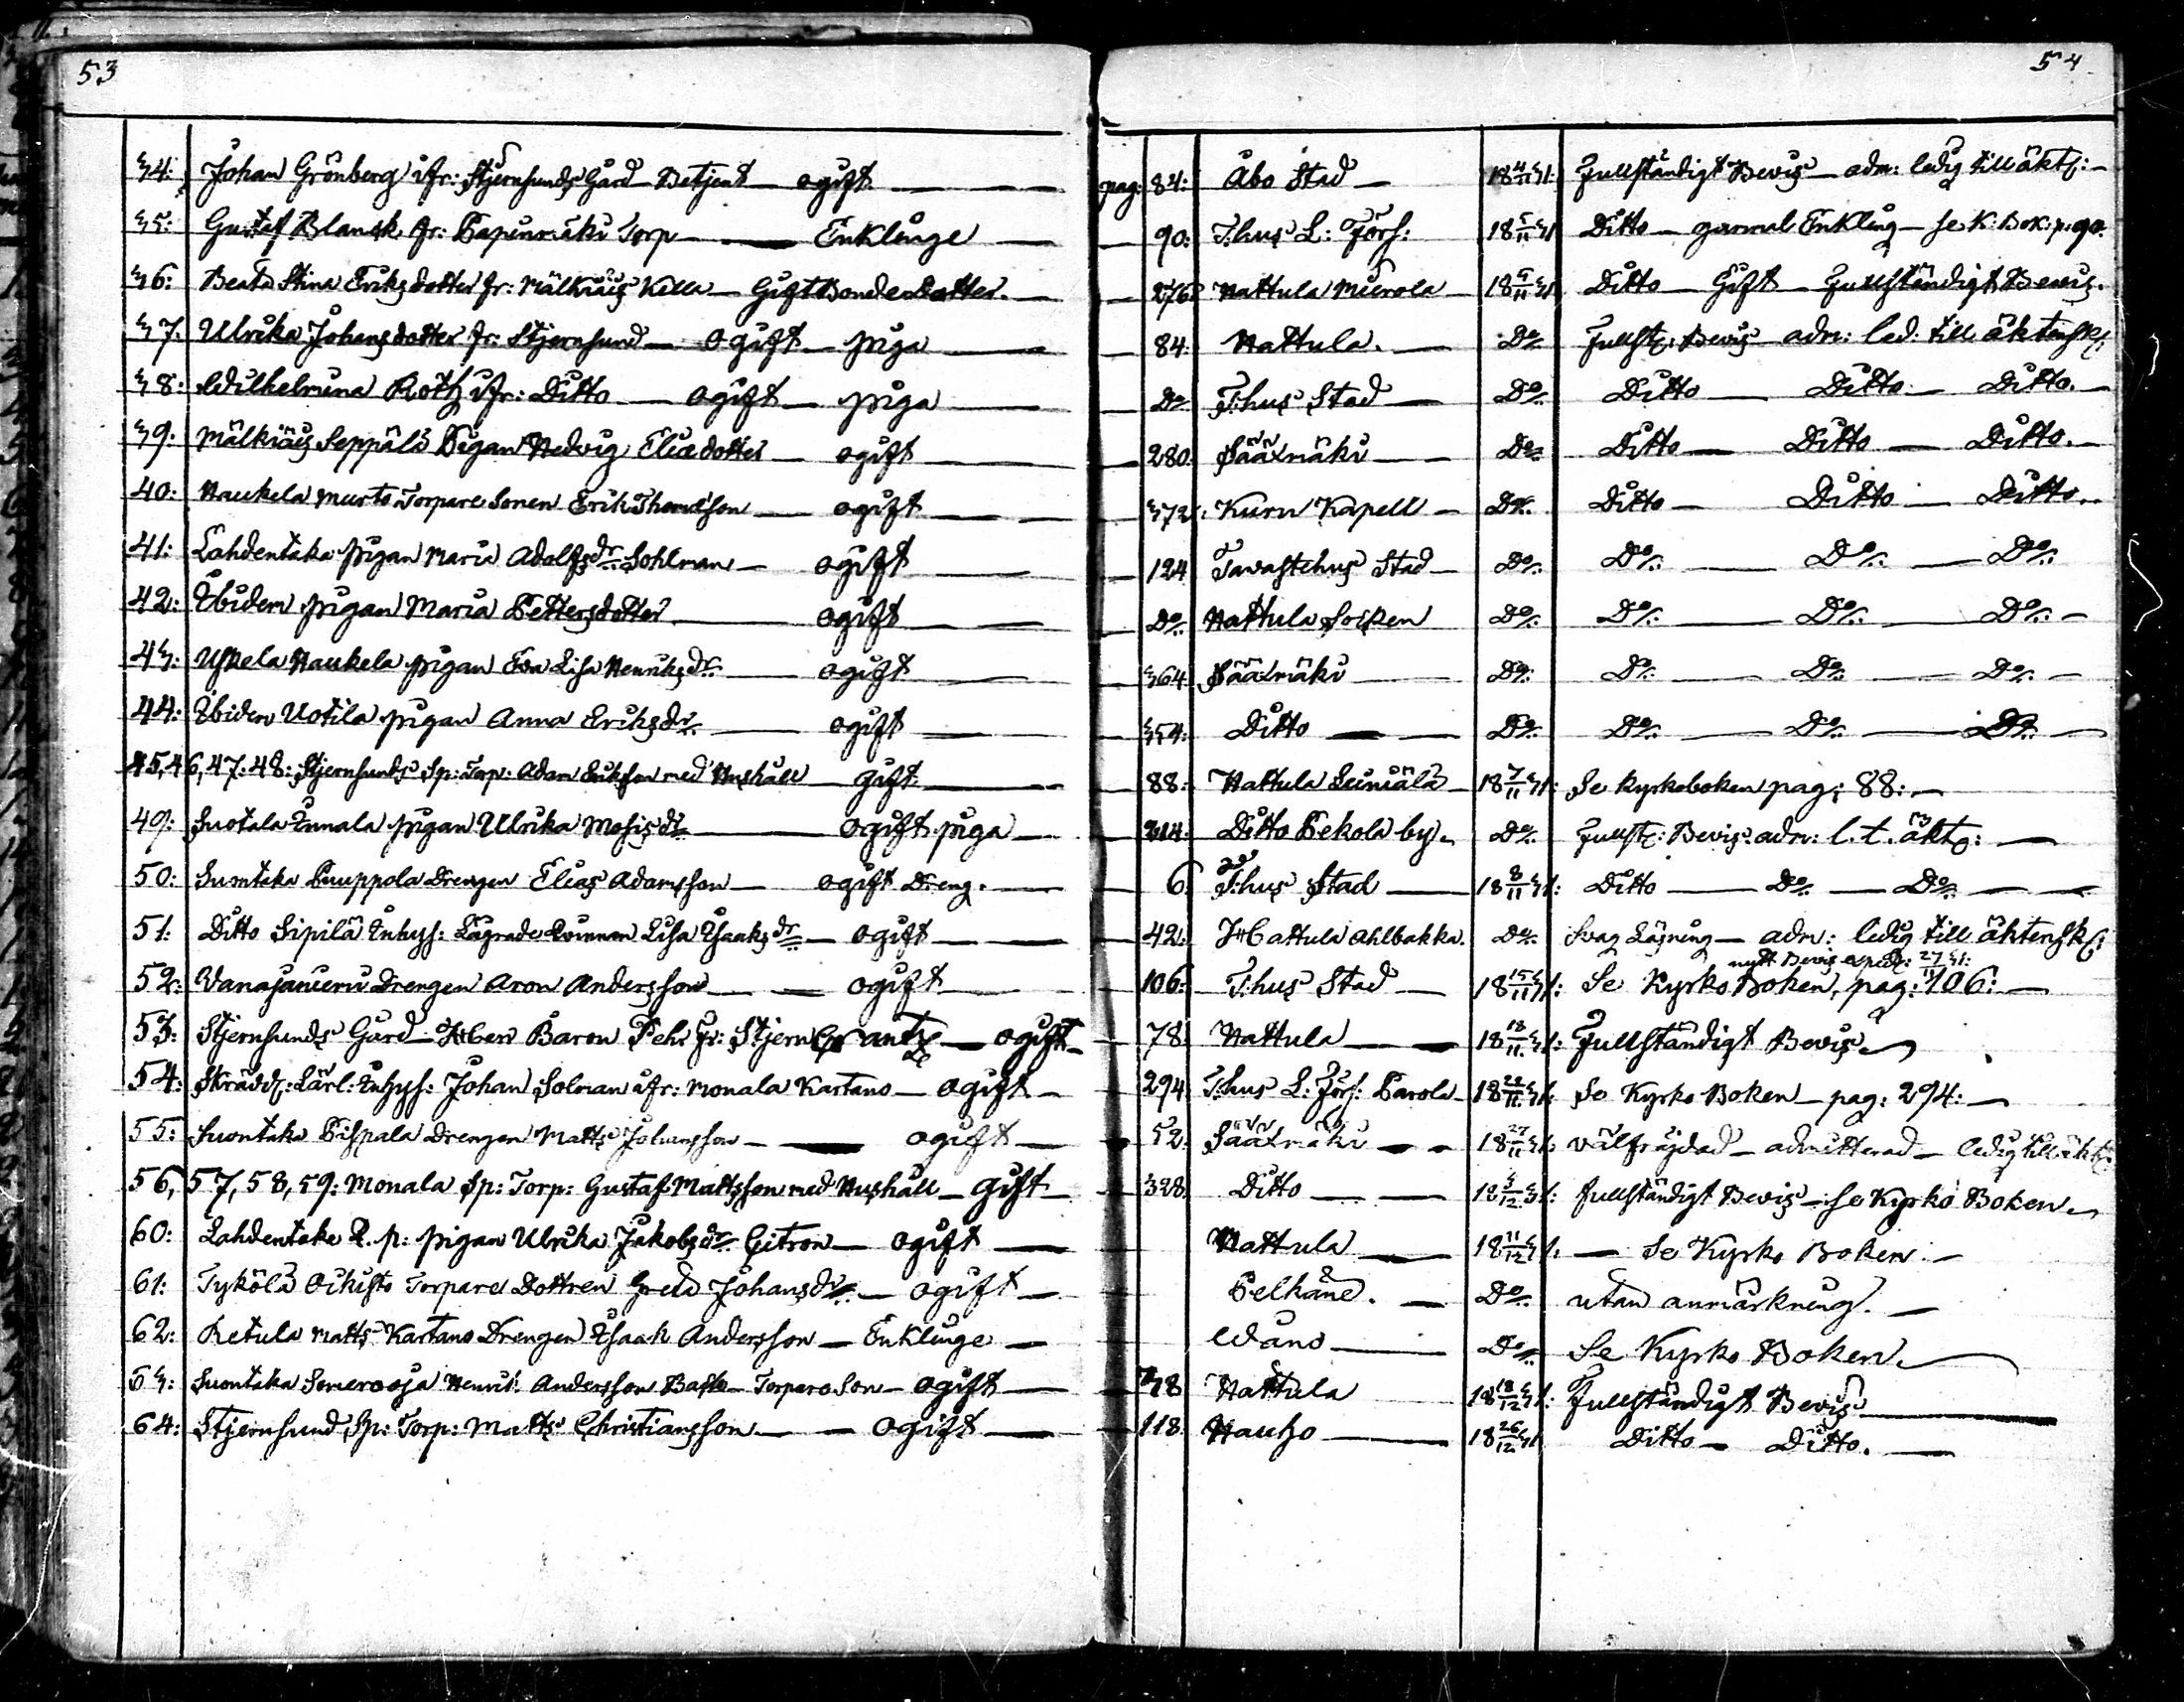 53
54
34: Johan Grönberg ifr: Stjernsunds Gård Betjent — ogift — pag: 84: Åbo Stad — 18 4/11 31: Fullständigt Bevis — adm: ledig till äkt:
35: Gustaf Blansk fr: Papinmäki Torp — Enklinge — 90: T:hus L: Förs: 18 5/11 31 Ditto — gammal Enkling — se K: Bok: p: 90.
36: Beata Stina Eriksdotter fr: Mälkiäis — Gift Bondedotter. — 276: Hattula Mierola — 18 5/11 31 Ditto — Gift — Fullständigt Bevis.
37. Ulrika Johansdotter fr: Stjernsund — ogift — piga — 84: Hattula. — Do Fullst: Bevis — adm: led: till äktensk:
38: Wilhelmina Roth ifr: Ditto — ogift — piga — Do T:hus Stad — Do Ditto — Ditto — Ditto.
39: Mälkiäis Seppälä Pigan Hedvig Eliedotter — ogift — 280: Sääxmäki — Do Ditto — Ditto — Ditto.
40: Haukela Murto Torpare Sonen Erik Thomsson — ogift — 372: Kuru Kapell — Do Ditto — Ditto — Ditto.
41: Lahdentaka pigan Maria Adolfsdr Sohlman — ogift — 124 Tavastehus Stad — Do Do — Do — Do
42: Ibidem pigan Maria Pettersdotter — ogift — Do Hattula Socken Do Do — Do — Do
43: Uskela Haukela pigan Eva Lisa Henriksdr — ogift — 364: Sääxmäki — Do Do — Do — Do
44: Ibidem Uotila pigan Anna Eriksdr — ogift — 354: Ditto — Do Do — Do — Do
45, 46, 47: 48: Stjernsunds Sp: Torp: Adam Erikson med Hushåll — gift — 88: Hattula Leiniälä — 18 7/11 31: Se kyrkoboken pag: 88: —
49: Suotala Innala pigan Ulrika Mosisdr — ogift piga — 314: Ditto Pekola by. Do Fullst: Bevis: adm: l. t. äkt: —
50: Suontaka Puuppola Drengen Elias Adamsson — ogift Dreng. — 6: T:hus Stad — 18 8/11 31: Ditto — Do — Do —
51: Ditto Sipilä Inhys: Lägrade Qvinnan Lisa Isaksdr — ogift — 42: Hattula Ahlbakka. Do Svag Läsning — adm: ledig till äktensk:
nytt Bevis exped: 27/11 31:
52: Vanajanierni Drengen Aron Andersson — ogift — 106: T:hus Stad — 18 15/11 31: Se Kyrko Boken, pag: 106: —
53: Stjernsunds Gård Baron Pehr Fr: StjernCrantz — ogift — 78: Hattula — 18 18/11 31: Fullständigt Bevis
54: Skrädd: Lärl: Inhys: Johan Solman ifr: Monala Kartano — ogift — 294 T:hus L: Förs: Parola — 18 22/11 31: Se Kyrko Boken — pag: 294: —
55: Suontaka Pispala Drengen Matts Johansson — ogift — 52: Sääxmäki — 18 27/11 31: välfräjdad — admitterad — ledig till äkt:
56, 57, 58, 59: Monala Sp: Torp: Gustaf Mattsson med Hushåll — gift — 328 Ditto — 18 3/12 31: fullständigt Bevis — se Kyrko Boken
60: Lahdentaka R. p: pigan Ulrika Jakobsdr Citron — ogift — Hattula — 18 11/12 31: — Se Kyrko Boken —
61: Tykölä Oikisto Torpare Dottren Greta Johansdr — ogift — Pelkäne. — Do utan anmärkning. —
62: Retula Matts Kartano Drengen Isaak Andersson — Enklinge — Wånå — Do Se Kyrko Boken
63: Suontaka Somerooja Henrik Andersson Torpare Son — ogift — Hattula 18 18/12 31: Fullständigt Bevis
64: Stjernsund Sp: Torp: Matts Christiansson — ogift — 118: Hauho — 18 26/12 31 Ditto — Ditto. —